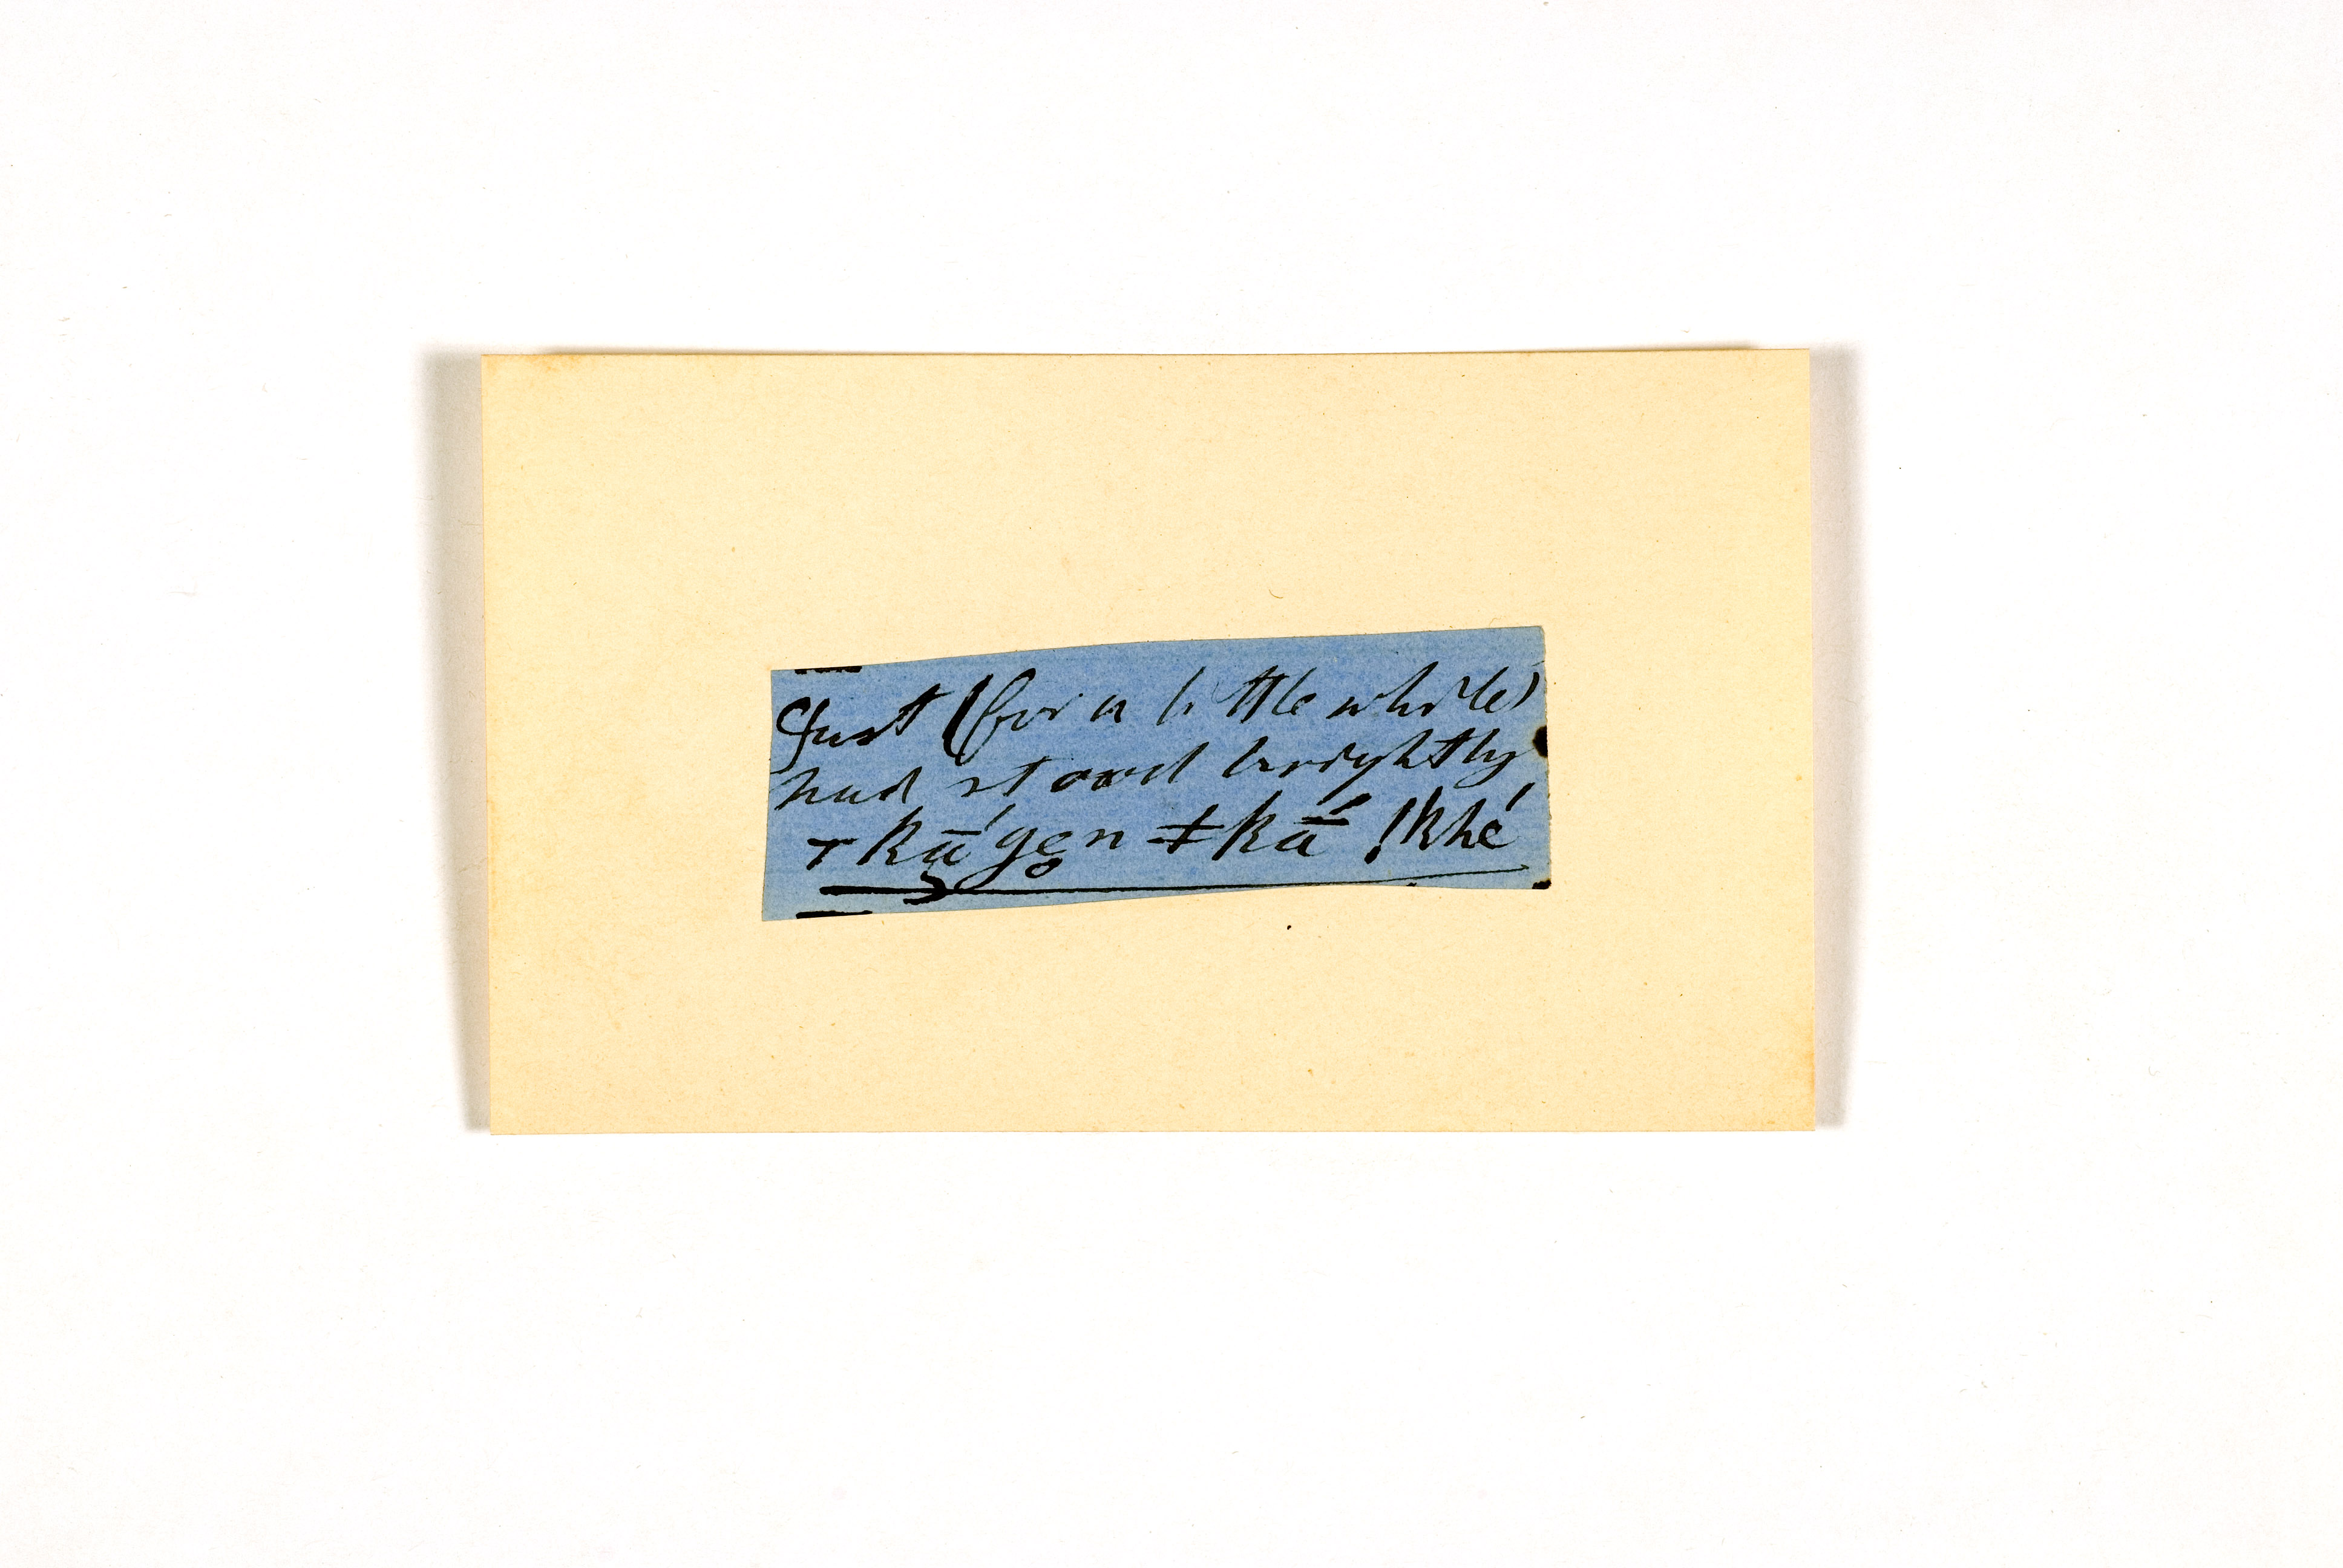 Just (for a little while)
had stood brightly
ǂkā́gen ǂkā́ !khé